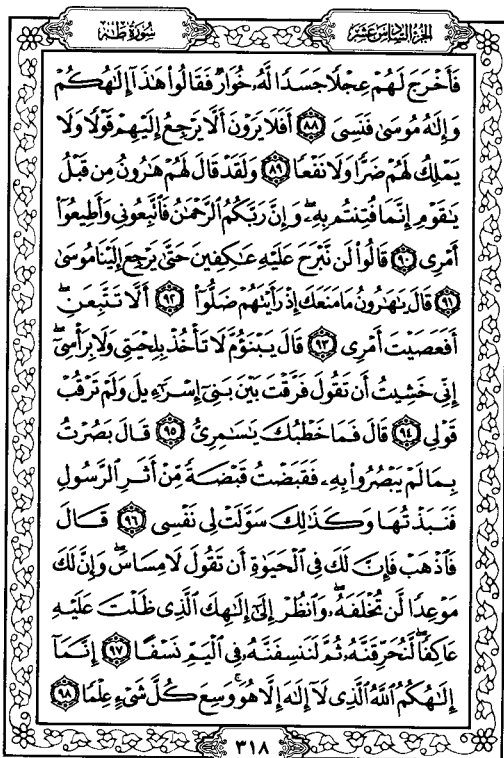 سُورَةُ طه
الجُزْءُ السَّادِسَ عَشَرَ
فَأَخْرَجَ لَهُمْ عِجْلًا جَسَدًا لَّهُۥ خُوَارٌ فَقَالُوا۟ هَٰذَآ إِلَٰهُكُمْ
وَإِلَٰهُ مُوسَىٰ فَنَسِىَ ﴿٨٨﴾ أَفَلَا يَرَوْنَ أَلَّا يَرْجِعُ إِلَيْهِمْ قَوْلًا وَلَا
يَمْلِكُ لَهُمْ ضَرًّا وَلَا نَفْعًا ﴿٨٩﴾ وَلَقَدْ قَالَ لَهُمْ هَٰرُونُ مِن قَبْلُ
يَٰقَوْمِ إِنَّمَا فُتِنتُم بِهِۦ وَإِنَّ رَبَّكُمُ ٱلرَّحْمَٰنُ فَٱتَّبِعُونِى وَأَطِيعُوٓا۟
أَمْرِى ﴿٩٠﴾ قَالُوا۟ لَن نَّبْرَحَ عَلَيْهِ عَٰكِفِينَ حَتَّىٰ يَرْجِعَ إِلَيْنَا مُوسَىٰ
﴿٩١﴾ قَالَ يَٰهَٰرُونُ مَا مَنَعَكَ إِذْ رَأَيْتَهُمْ ضَلُّوٓا۟ ﴿٩٢﴾ أَلَّا تَتَّبِعَنِ ۖ
أَفَعَصَيْتَ أَمْرِى ﴿٩٣﴾ قَالَ يَبْنَؤُمَّ لَا تَأْخُذْ بِلِحْيَتِى وَلَا بِرَأْسِىٓ ۖ
إِنِّى خَشِيتُ أَن تَقُولَ فَرَّقْتَ بَيْنَ بَنِىٓ إِسْرَٰٓءِيلَ وَلَمْ تَرْقُبْ
قَوْلِى ﴿٩٤﴾ قَالَ فَمَا خَطْبُكَ يَٰسَٰمِرِىُّ ﴿٩٥﴾ قَالَ بَصُرْتُ
بِمَا لَمْ يَبْصُرُوا۟ بِهِۦ فَقَبَضْتُ قَبْضَةً مِّنْ أَثَرِ ٱلرَّسُولِ
فَنَبَذْتُهَا وَكَذَٰلِكَ سَوَّلَتْ لِى نَفْسِى ﴿٩٦﴾ قَالَ
فَٱذْهَبْ فَإِنَّ لَكَ فِى ٱلْحَيَوٰةِ أَن تَقُولَ لَا مِسَاسَ ۖ وَإِنَّ لَكَ
مَوْعِدًا لَّن تُخْلَفَهُۥ ۖ وَٱنظُرْ إِلَىٰٓ إِلَٰهِكَ ٱلَّذِى ظَلْتَ عَلَيْهِ
عَاكِفًا ۖ لَّنُحَرِّقَنَّهُۥ ثُمَّ لَنَنسِفَنَّهُۥ فِى ٱلْيَمِّ نَسْفًا ﴿٩٧﴾ إِنَّمَآ
إِلَٰهُكُمُ ٱللَّهُ ٱلَّذِى لَآ إِلَٰهَ إِلَّا هُوَ ۚ وَسِعَ كُلَّ شَىْءٍ عِلْمًا ﴿٩٨﴾
٣١٨